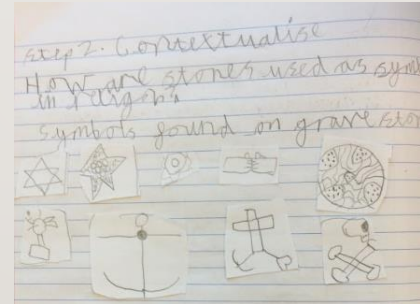 step 2. Contextualise
How are stones used as sym
in religons
symbols found on grave sto